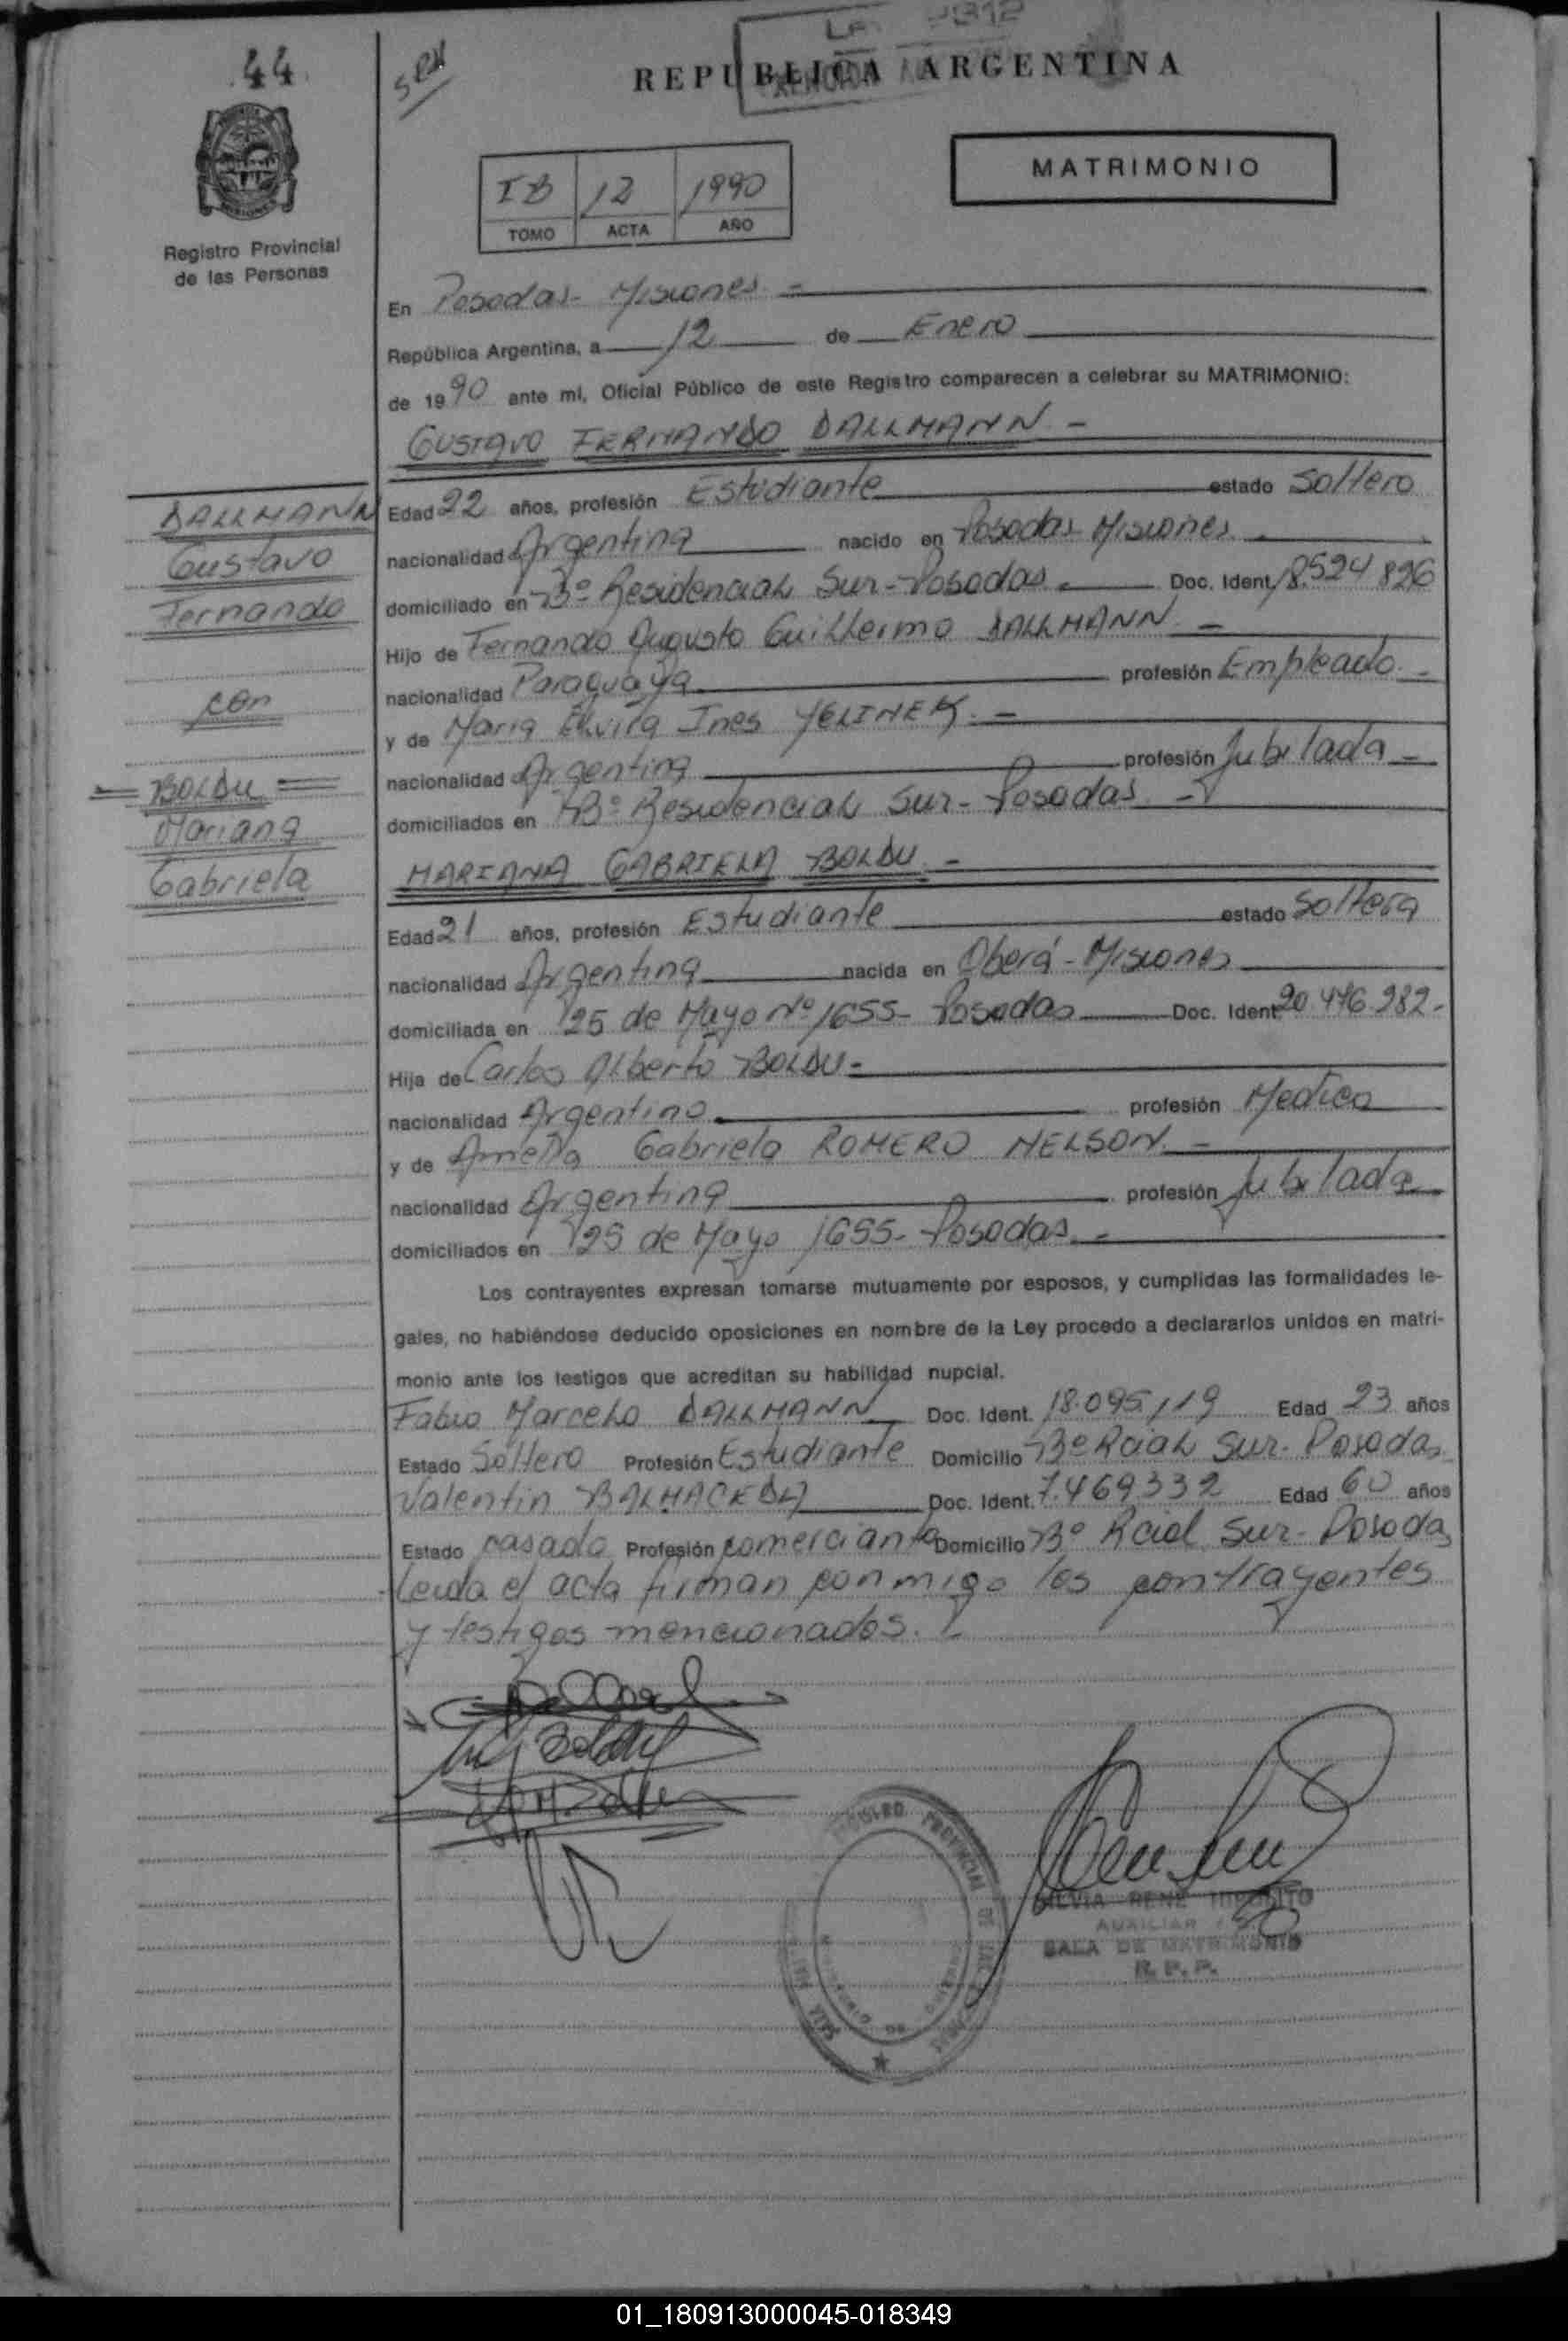 44
REPUBLICA ARGENTINA
MATRIMONIO
IB 12 1990
TOMO ACTA AÑO
Registro Provincial
de las Personas
En Posadas - Misiones. -
República Argentina, a 12 de Enero
de 1990 ante mí, Oficial Público de este Registro comparecen a celebrar su MATRIMONIO:
GUSTAVO FERNANDO DALLMANN -
DALLMANN
Gustavo
Fernando
con
= BOLDU =
Mariana
Gabriela
Edad 22 años, profesión Estudiante estado Soltero
nacionalidad Argentina nacido en Posadas Misiones.
domiciliado en Bº Residencial Sur - Posadas. Doc. Ident. 18.524 826
Hijo de Fernando Augusto Guillermo DALLMANN -
nacionalidad Paraguaya profesión Empleado. -
y de Maria Elvira Ines YELINEK. -
nacionalidad Argentina profesión Jubilada -
domiciliados en Bº Residencial Sur - Posadas. -
MARIANA GABRIELA BOLDU -
Edad 21 años, profesión Estudiante estado Soltera
nacionalidad Argentina nacida en Oberá - Misiones
domiciliada en 25 de Mayo Nº 1655 - Posadas Doc. Ident. 20.476.282.-
Hija de Carlos Alberto BOLDU -
nacionalidad Argentino profesión Medico
y de Amelia Gabriela ROMERO NELSON. -
nacionalidad Argentina profesión Jubilada
domiciliados en 25 de Mayo 1655 - Posadas. -
Los contrayentes expresan tomarse mutuamente por esposos, y cumplidas las formalidades le-
gales, no habiéndose deducido oposiciones en nombre de la Ley procedo a declararlos unidos en matri-
monio ante los testigos que acreditan su habilidad nupcial.
Fabio Marcelo DALLMANN Doc. Ident. 18.095.119 Edad 23 años
Estado Soltero Profesión Estudiante Domicilio Bº Rcial Sur - Posadas
Valentin BALMACEDA Doc. Ident. 7.469.332 Edad 60 años
Estado casado Profesión comerciante Domicilio Bº Rcial Sur - Posadas
Leida el acta firman conmigo los contrayentes
y testigos mencionados. -
SILVIA RENE HIPOLITO
AUXILIAR
SALA DE MATRIMONIO
R. P. P.
01_180913000045-018349